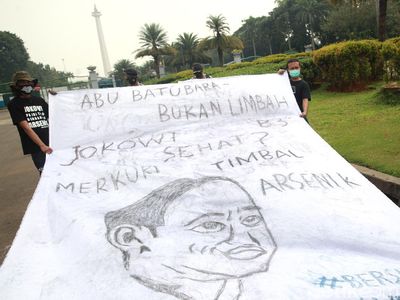 ABU BATUBARA-
BUKAN LIMBAH
B3
JOKOWI SEHAT?
MERKURI TIMBAL
ARSENIK
JOKOWI
ARSENIK